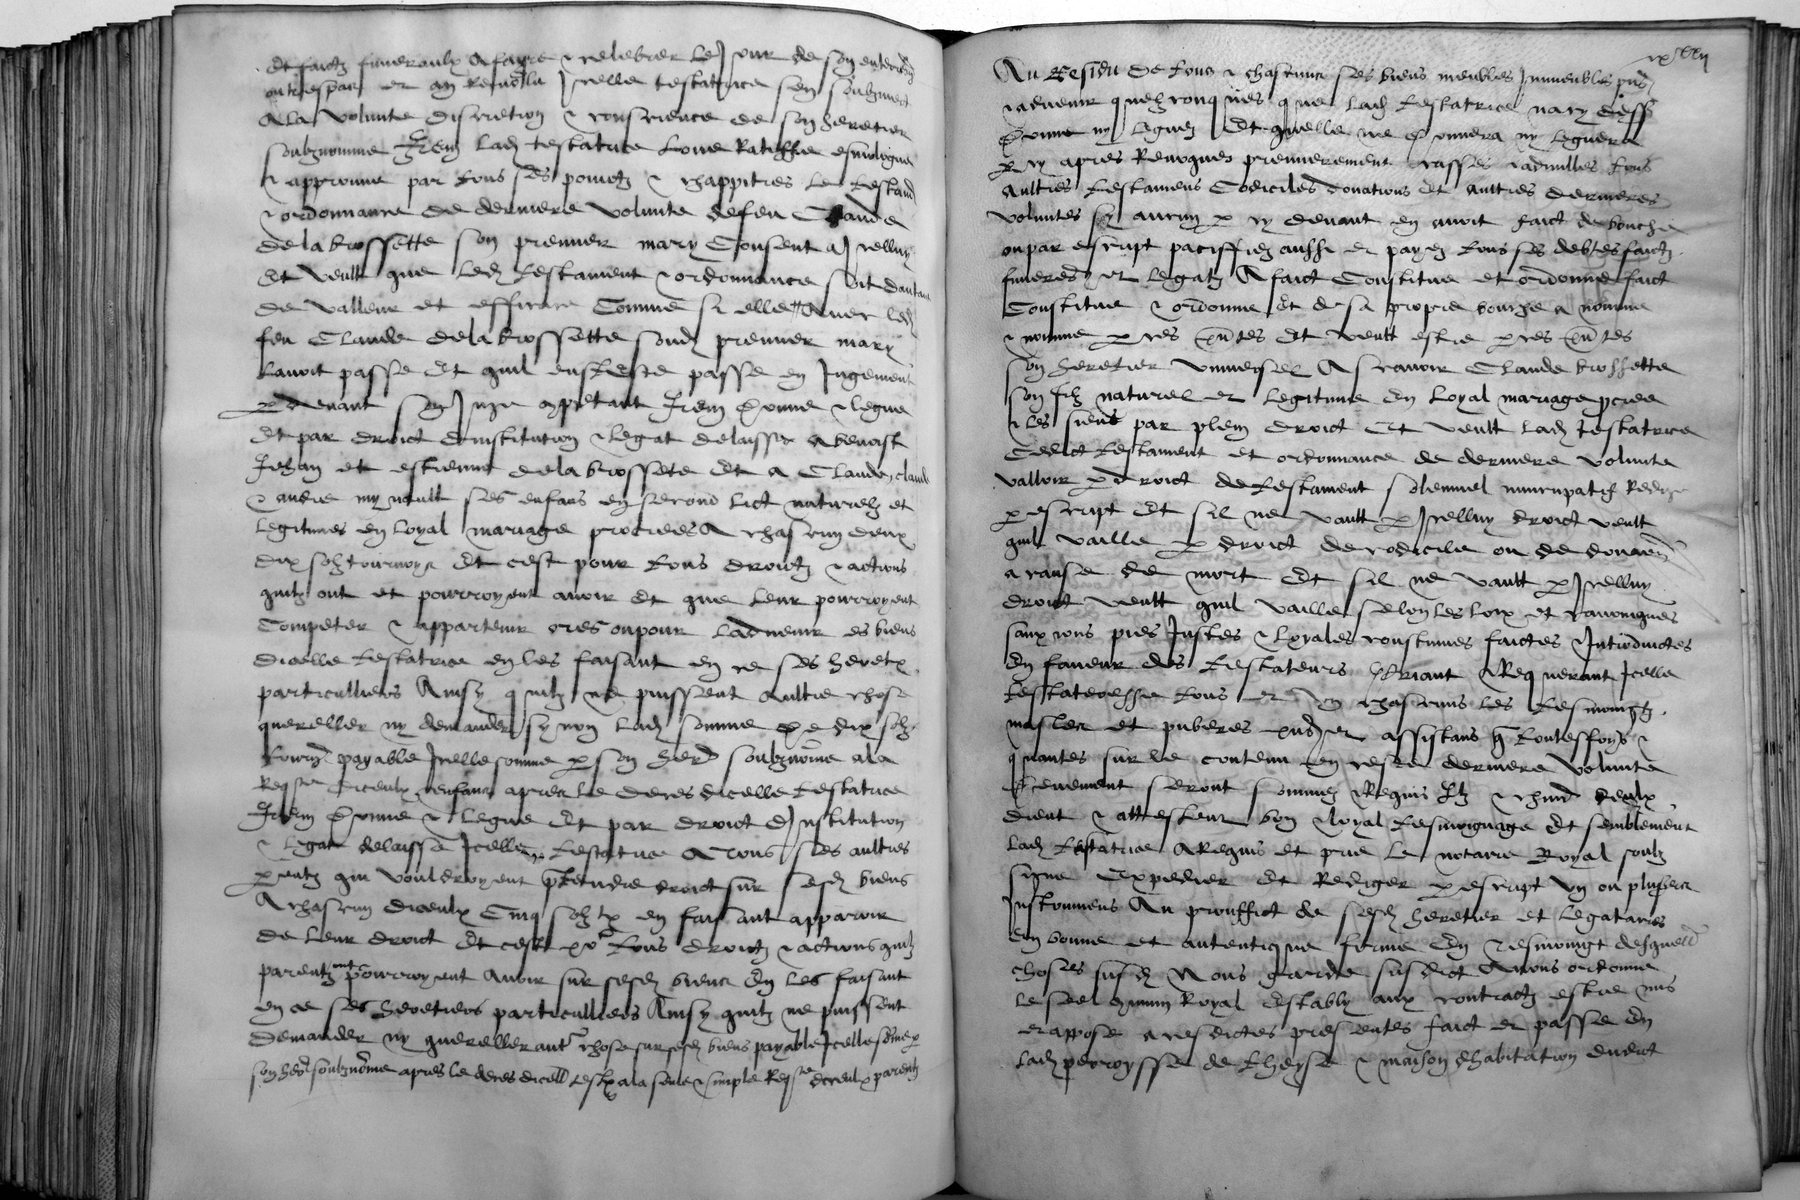 et faictz funeraulx a faire & celebrer le Jour de son enterrement
oultrespas et an Revollu Jcelle testatrice sen soubzmect
a la volunte discretion & conscience de son heretier
soubznomme Jtem lad testatrice Loue Ratiffie esmologue
& approuve par tous ses poinctz & chappitres le testand
& ordonnance de derniere volunte de feu Claude
de la brossette son premier mary Consent a Jcelluy
Et veult que led testament & ordonnance soit dautant
de valleur et efficace Comme si elle avec led
feu Claude de la brossette sond premier mary
lavoit passe Et quil eust este passe en Jugement
p devant son Juge appetant Jtem donne & legue
Et par droict dinstitution & legat delaisse a benoist
Jehan et estienne de la brossete Et a Claude, claude
& andre my ses enfans en second lict naturelz et
Legitimes en loyal mariage procrees A chascun deux
dix solz tournoys Et cest pour tous droictz & actions
quilz ont et pourroyent avoir et que leur pourroyent
Competer & appartenir ores ou pour ladvenir es biens
dicelle testatrice en les faisant en ce ses heretz
particulliers Ainsy quilz ne puissent aultre chose
quereller ny demander synon lad somme de dix solz
tourn payable Jcelle somme p son herd soubznome a la
Reqste diceulx enfans apres le deces dicelle testatrice
Jtem donne & legue Et par droict dJnstitution
& legat delaisse Jcelle testatrice A tous ses aultres
parentz qui vouldroyent ptendre droict sur sesd biens
A chascun diceulx Cinq solz tz en faisant apparoir
de leur droict Et cest por tous droictz & actions quilz
parentz ont pourroyent avoir sur sesd biens En les faisant
en ce ses heretiers particulliers Ainsy quilz ne puissent
demander ny quereller autre chose sur sesd biens payable Jcelle some p
son herd soubznome apres le deces dicelle testx a la seule & simple Reqste diceulx parentz
Au Residu de tous & chascuns ses biens meubles Jmmeubles pns
& advenir quelzconques que lad testatrice nary dess
donne ny legue Et quelle ne donnera ny leguera
p cy apres Revoques premierement casses & adnulles tous
aultres testamens Codiciles donations et aultres dernieres
voluntes sy aucun p cy devant en avoit faict de bouche
ou par escript paciffiez aussi et payez tous ses debtes faictz
funeres et legatz A faict Constitue et ordonne faict
Constitue & ordonne Et de sa propre bouche a nomme
& nomme p ces pntes Et veult estre p ces pntes
son heretier universel A scavoir Claude brossette
son filz naturel et legitime En loyal mariage pcree
& les siens par plein droict Et veult lad testatrice
Cedict testament et ordonnance de derniere volunte
valloir p droict de testament solennel nuncupatif Redige
p escript Et sil ne vault p Jcelluy droict veult
quil vaille p droict de codicile ou de donation
a cause de mort Et sil ne vault p Jcelluy
droict veult quil vaille selon les loix et canoniques
sanxions pies Justes & loyales coustumes faictes & Introduictes
En faveur des testateurs priant & Requerant Jcelle
testateresse tous et Vng chascuns les tesmoingtz
masles et puberes pnts et assistans q toutesfoys &
quantes sur le contenu en ceste derniere volunte
& evenement seront sommes & Requis Jlz & chund deulx
dient & attestent bon & loyal tesmoignage Et semblement
lad testatrice A Requis et prie le notaire Royal soubz
signe Expedier Et Rediger p escript vng ou plusieurs
Jnstrumens Au prouffict de sesd heretier et legataires
En bonne et autentique forme En tesmoingt desquelles
choses susd Nous garde susdict Avons ordonne
le seel comun Royal estably aux contractz estre mis
et appose a ces dictes presentes faict et passe En
lad perroysse de theyse & maison dhabitation dudict